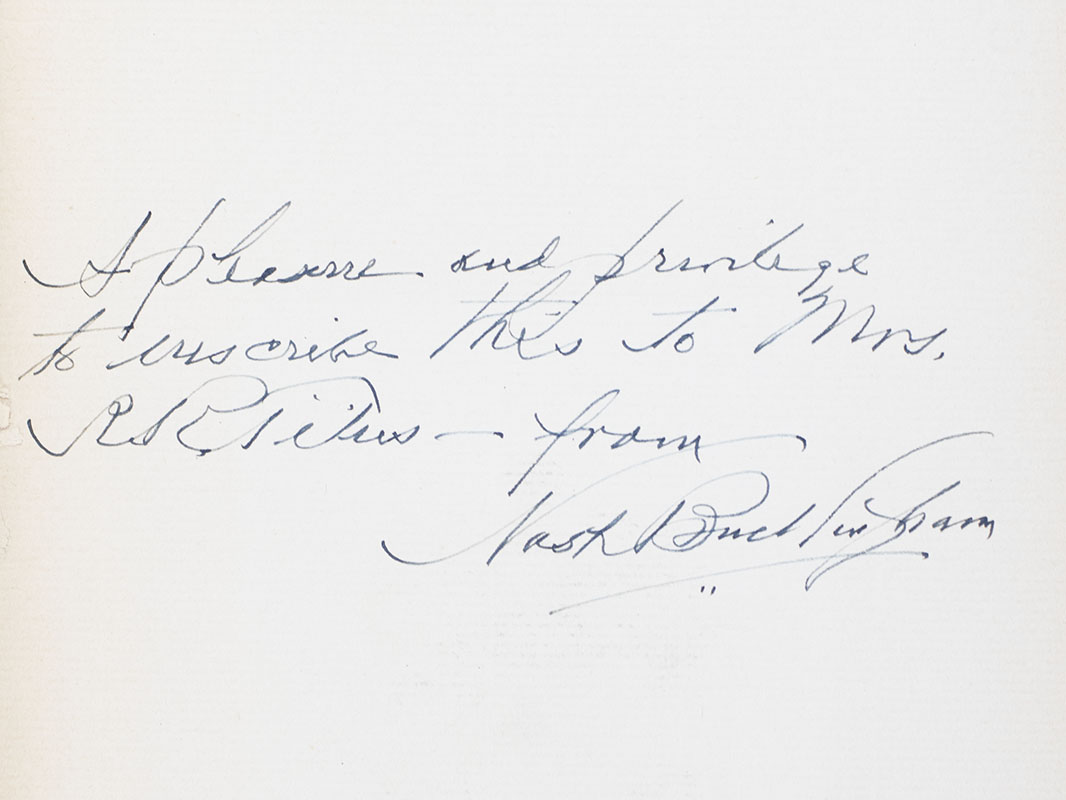 A pleasure and privilege
to inscribe this to Mrs.
R.R. Titus — from
Nash Buckingham